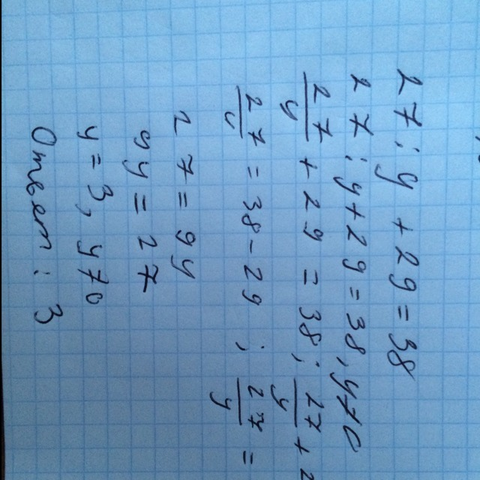 27 : y + 29 = 38
27 : y + 29 = 38, y ≠ 0
27/y + 29 = 38 ; 27/y + 2
27/y = 38 - 29 ; 27/y =
27 = 9y
9y = 27
y = 3, y ≠ 0
Ответ : 3